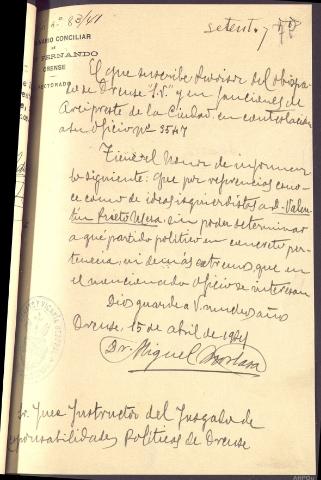 Nº 83/41
SEMINARIO CONCILIAR
DE
FERNANDO
ORENSE
RECTORADO
El que suscribe Provisor del Obispa-
do de Orense "S.V." y en funciones de
Arcipreste de la Ciudad, en contestación
a su oficio nº 3547
Tiene el honor de informar
lo siguiente: que por referencias cono-
ce como de ideas izquierdistas a D. Valen-
tín Prieto, sin poder determinar
a qué partido político en concreto per-
tenecía, ni demás extremos, que en
el mencionado oficio se interesan
Dios guarde a V. muchos años
Orense, 15 de abril de 1941
Dr. Miguel
Sr. Juez Instructor del Juzgado de
Responsabilidades Políticas de Orense